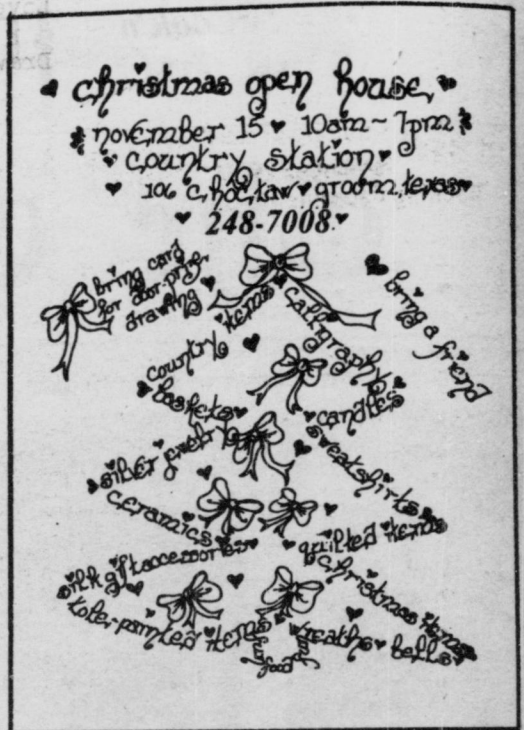 christmas open house
november 15 10am~7pm
country station
106 choctaw groom, texas
248-7008
bring card
for door prize
drawing
bring a friend
country items
calligraphy
baskets
candles
silver jewelry
sweatshirts
ceramics
quilted items
silk gift accessories
christmas items
tole painted items
wreaths bells
food